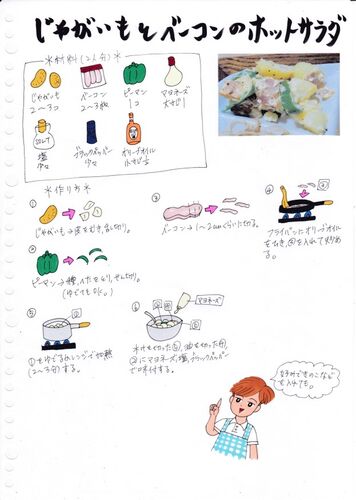 じゃがいもとベーコンのホットサラダ
*材料(2人分)*
じゃがいも
2〜3コ
ベーコン
2〜3枚
ピーマン
1コ
マヨネーズ
大さじ1
SALT
塩
少々
ブラックペッパー
少々
オリーブオイル
小さじ
*作り方*
①
じゃがいも→皮をむき、乱切り。
②
ピーマン→種、ヘタをとり、せん切り。
③
ベーコン→1〜2cmくらいに切る。
④
フライパンにオリーブオイル
をひき、③を入れて炒め
る。
⑤
①をゆでるかレンジで加熱
(2〜3分)する。
⑥
マヨネーズ
水けを切った⑤、油を切った④、
②にマヨネーズ、塩、ブラックペッパー
で味付する。
お好みできのこなど
を入れても。